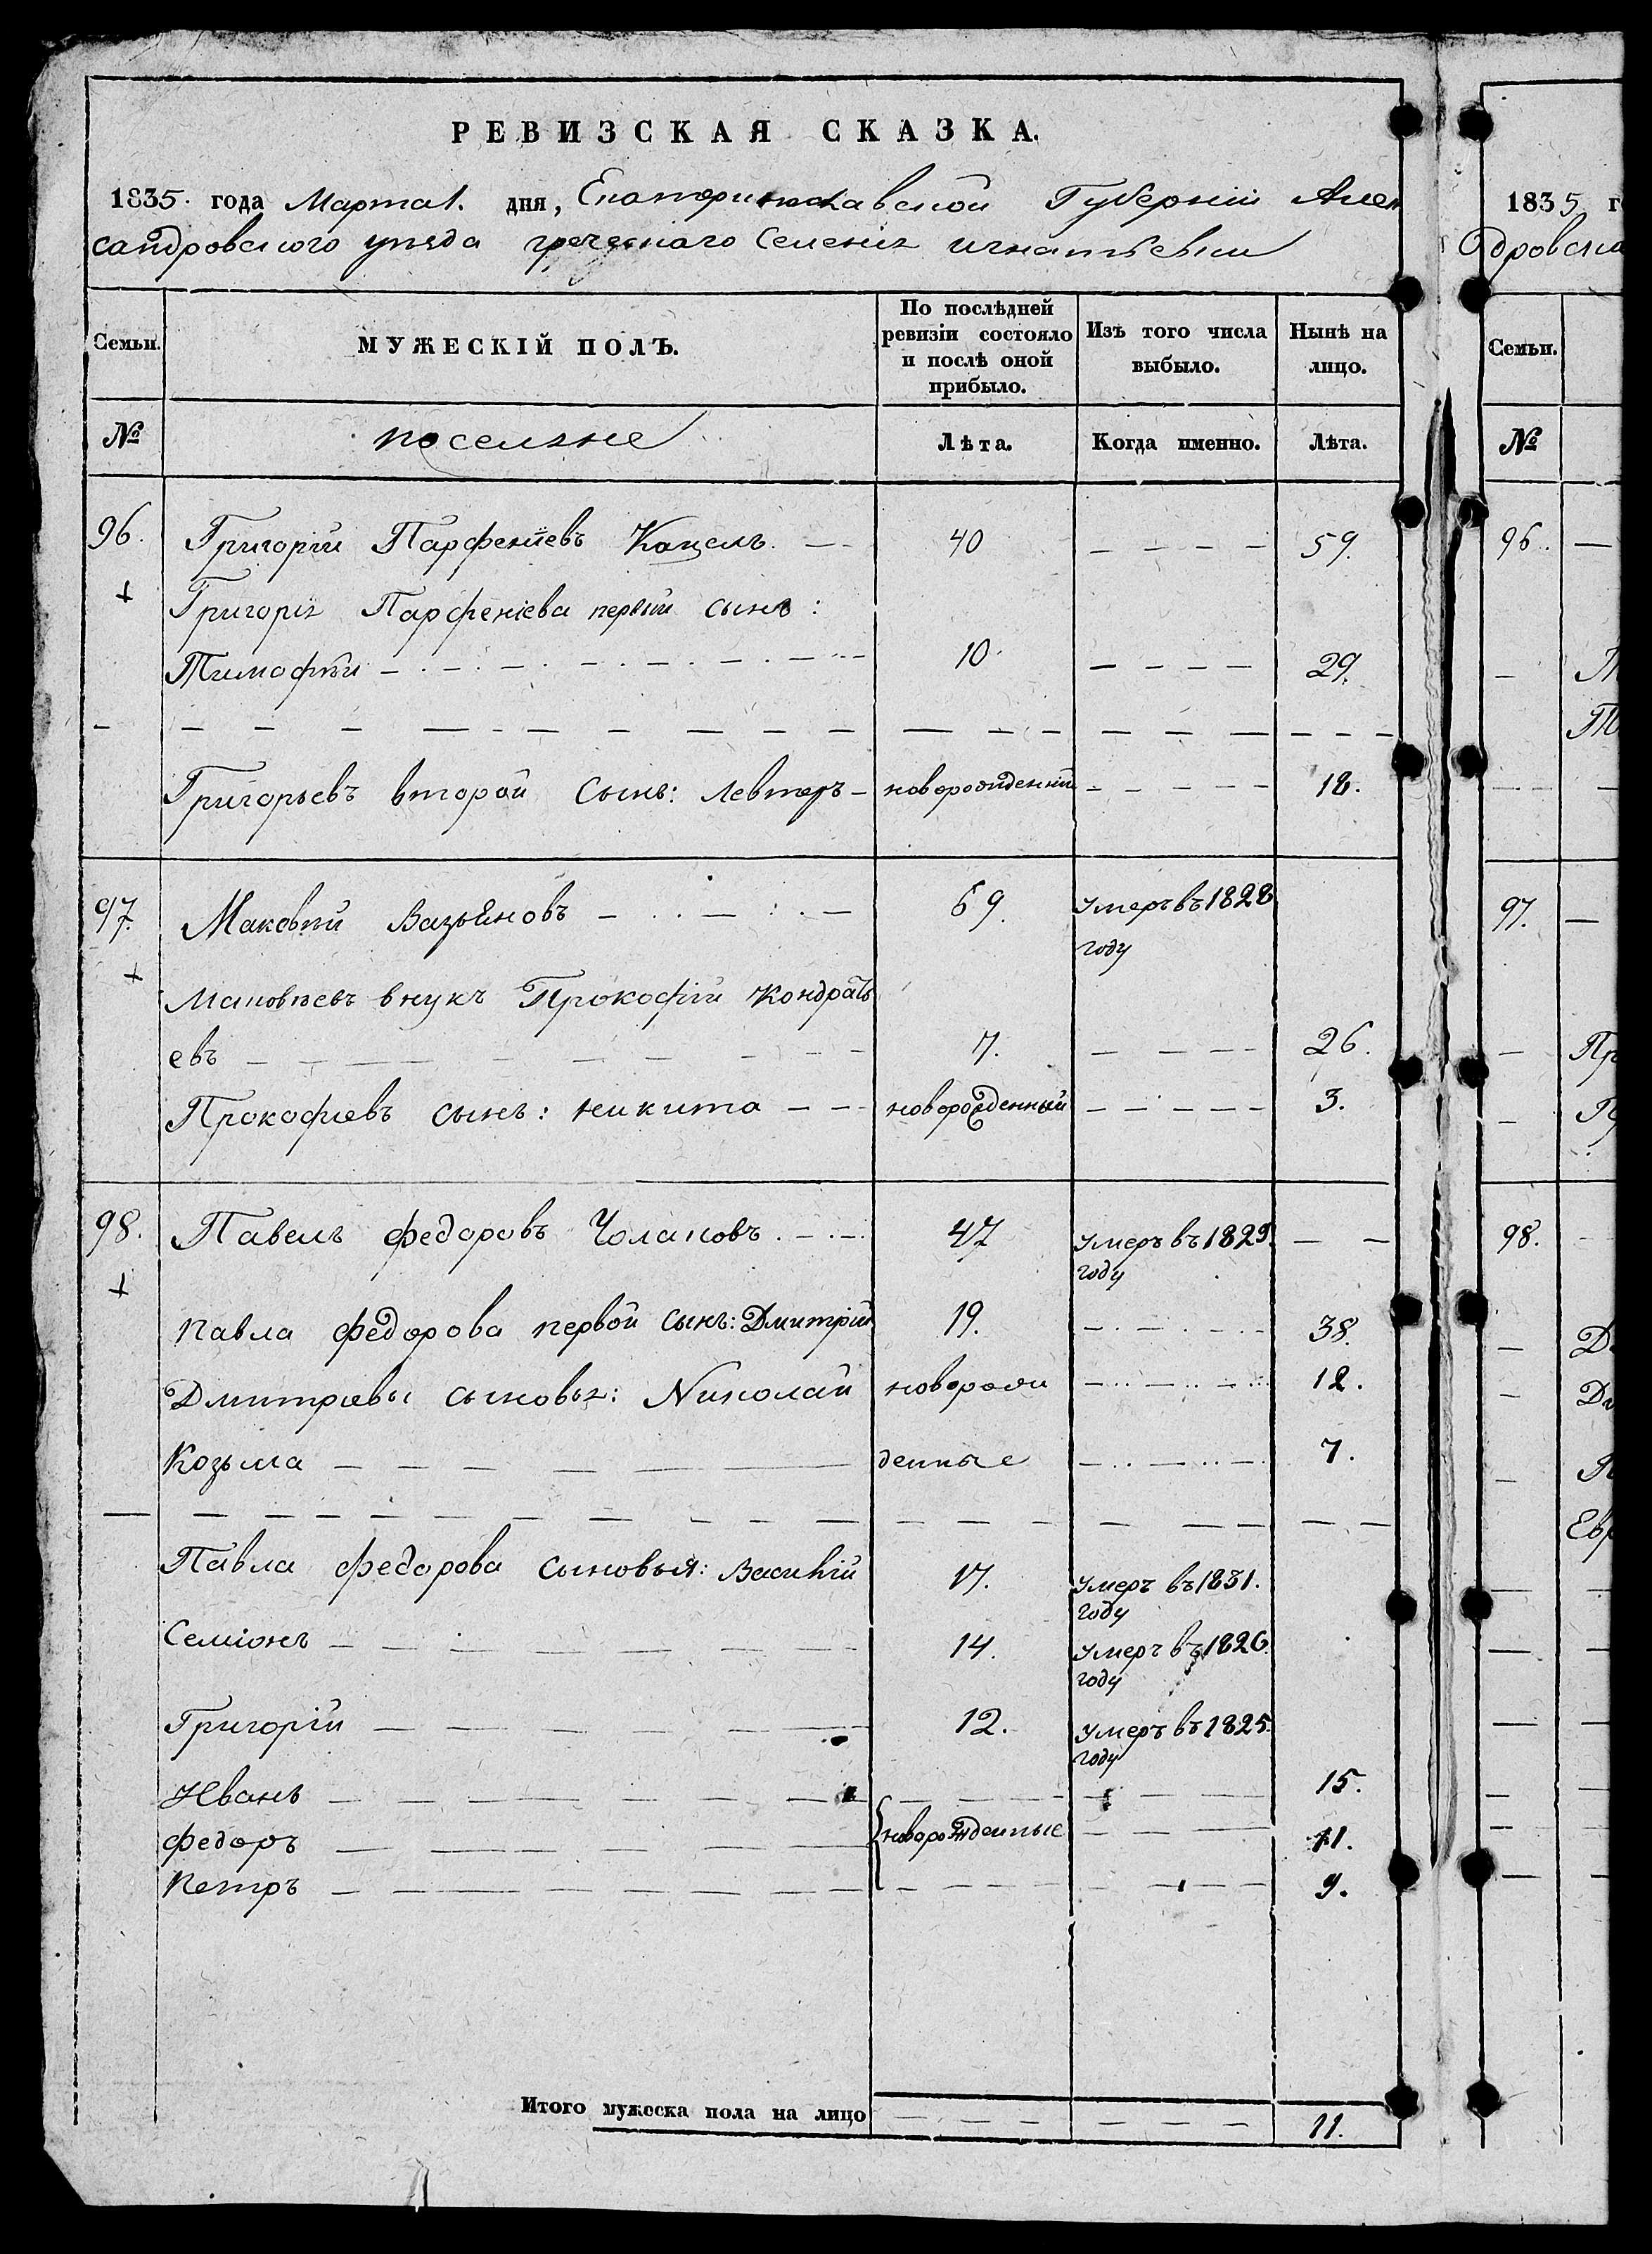 РЕВИЗСКАЯ СКАЗКА.
1835. года Марта 1. дня, Екатеринославской Губерніи Алек
сандровского уѣзда греческаго Селенія игнатьевки
Семьи. МУЖЕСКІЙ ПОЛЪ. По послѣдней ревизіи состояло и послѣ оной прибыло. Изъ того числа выбыло. Нынѣ на лицо.
№ поселяне Лѣта. Когда именно. Лѣта.
96. Григорій Парфеніевъ Кацелъ. — 40 — — — — 59.
+ Григорія Парфеніева первый сынъ:
Тимофѣй — 10. — — — — 29.
Григорьевъ второй Сынъ: Левтеръ — новорожденный — — — — 18.
97. Маковѣй Вазыновъ — 69. умеръ въ 1828
году
+ Маковѣевъ внукъ Прокофій Кондрать
евъ — 7. — — — — 26.
Прокофіевъ сынъ: никита — — новорожденный — — — — — 3.
98. Павелъ федоровъ Чолаковъ. — 47 умеръ въ 1829. — —
году
+ павла федорова первой сынъ: Дмитрій 19. — 38.
Дмитріевы сыновья: Николай новорож — 12.
Козьма — денные — 7.
Павла федорова сыновья: Василій 17. умеръ въ 1831.
году
Семіонъ — 14. умеръ въ 1826.
году
Григорій — 12. умеръ въ 1825.
году
Иванъ — 15.
федоръ — новорожденные — — — 11.
Петръ — 9.
Итого мужеска пола на лицо — — — — — — — 11.
1835 г
дровск
Семьи.
№
96. —
97. —
Пр
98.
Евр